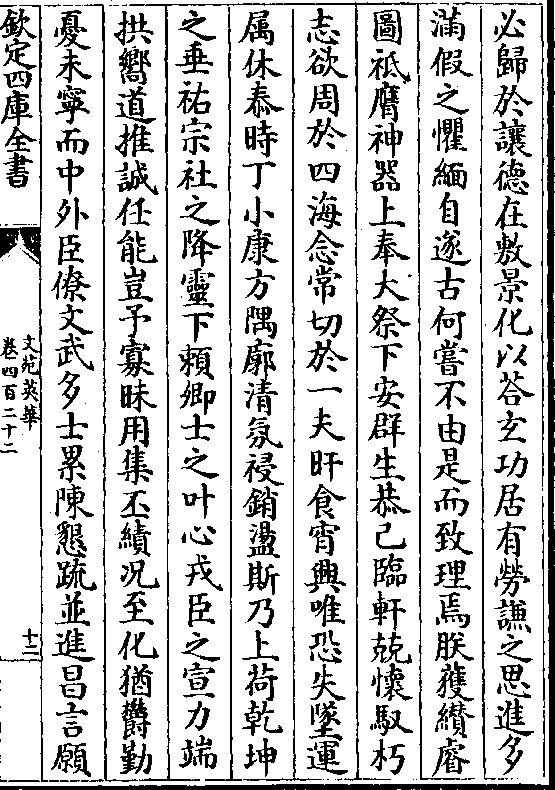 必歸於讓德在敷景化以答玄功居有勞謙之思進多
滿假之懼緬自遂古何嘗不由是而致理焉朕獲纘睿
圖祗膺神器上奉大祭下安群生恭己臨軒兢懷馭朽
志欲周於四海念常切於一夫旰食宵興唯恐失墜運
属休泰時丁小康方隅廓清氛祲銷盪斯乃上荷乾坤
之垂祐宗社之降靈下頼卿士之叶心戎臣之宣力端
拱嚮道推誠任能豈予寡昧用集丕績况至化猶欝勤
憂未寧而中外臣僚文武多士累陳懇䟽並進昌言願
欽定四庫全書
文苑英華
卷四百二十二
十二